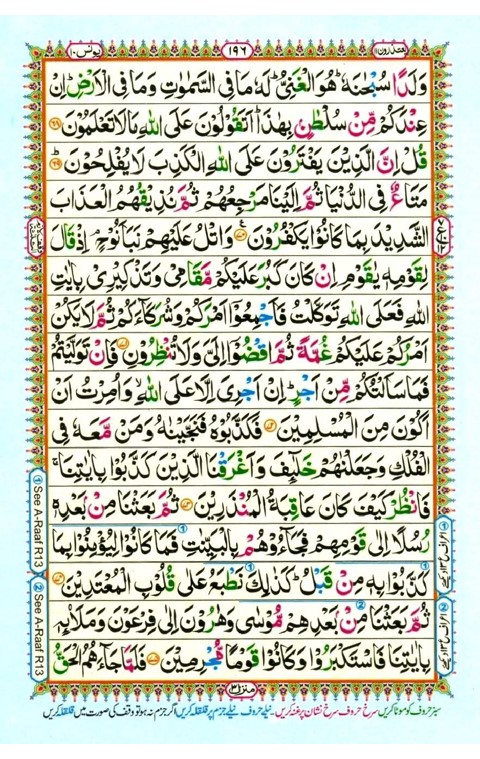 یونس ۱۰
۱۹۶
یعتذرون ۱۱
وَلَدًا سُبْحٰنَهٗ ؕ هُوَ الْغَنِیُّ ؕ لَهٗ مَا فِی السَّمٰوٰتِ وَمَا فِی الْاَرْضِ ؕ اِنْ
عِنْدَكُمْ مِّنْ سُلْطٰنٍۭ بِهٰذَا ؕ اَتَقُوْلُوْنَ عَلَی اللّٰهِ مَا لَا تَعْلَمُوْنَ ﴿۶۸﴾
قُلْ اِنَّ الَّذِیْنَ یَفْتَرُوْنَ عَلَی اللّٰهِ الْكَذِبَ لَا یُفْلِحُوْنَ ﴿۶۹﴾
مَتَاعٌ فِی الدُّنْیَا ثُمَّ اِلَیْنَا مَرْجِعُهُمْ ثُمَّ نُذِیْقُهُمُ الْعَذَابَ
الشَّدِیْدَ بِمَا كَانُوْا یَكْفُرُوْنَ ﴿۷۰﴾ وَاتْلُ عَلَیْهِمْ نَبَاَ نُوْحٍ ۘ اِذْ قَالَ
لِقَوْمِهٖ یٰقَوْمِ اِنْ كَانَ كَبُرَ عَلَیْكُمْ مَّقَامِیْ وَتَذْكِیْرِیْ بِاٰیٰتِ
اللّٰهِ فَعَلَی اللّٰهِ تَوَكَّلْتُ فَاَجْمِعُوْۤا اَمْرَكُمْ وَشُرَكَآءَكُمْ ثُمَّ لَا یَكُنْ
اَمْرُكُمْ عَلَیْكُمْ غُمَّةً ثُمَّ اقْضُوْۤا اِلَیَّ وَلَا تُنْظِرُوْنِ ﴿۷۱﴾ فَاِنْ تَوَلَّیْتُمْ
فَمَا سَاَلْتُكُمْ مِّنْ اَجْرٍ ؕ اِنْ اَجْرِیَ اِلَّا عَلَی اللّٰهِ ۙ وَاُمِرْتُ اَنْ
اَكُوْنَ مِنَ الْمُسْلِمِیْنَ ﴿۷۲﴾ فَكَذَّبُوْهُ فَنَجَّیْنٰهُ وَمَنْ مَّعَهٗ فِی
الْفُلْكِ وَجَعَلْنٰهُمْ خَلٰٓئِفَ وَاَغْرَقْنَا الَّذِیْنَ كَذَّبُوْا بِاٰیٰتِنَا ۚ
فَانْظُرْ كَیْفَ كَانَ عَاقِبَةُ الْمُنْذَرِیْنَ ﴿۷۳﴾ ثُمَّ بَعَثْنَا مِنْۢ بَعْدِهٖ
رُسُلًا اِلٰی قَوْمِهِمْ فَجَآءُوْهُمْ بِالْبَیِّنٰتِ فَمَا كَانُوْا لِیُؤْمِنُوْا بِمَا
كَذَّبُوْا بِهٖ مِنْ قَبْلُ ؕ كَذٰلِكَ نَطْبَعُ عَلٰی قُلُوْبِ الْمُعْتَدِیْنَ ﴿۷۴﴾
ثُمَّ بَعَثْنَا مِنْۢ بَعْدِهِمْ مُّوْسٰی وَهٰرُوْنَ اِلٰی فِرْعَوْنَ وَمَلَا۟ئِهٖ
بِاٰیٰتِنَا فَاسْتَكْبَرُوْا وَكَانُوْا قَوْمًا مُّجْرِمِیْنَ ﴿۷۵﴾ فَلَمَّا جَآءَهُمُ الْحَقُّ
① See A-Raaf R13
② See A-Raaf R13
منزل ۳
سبز حروف کو موٹا کریں سرخ حروف سرخ نشان پر غنہ کریں۔ نیلے حروف نیلے جزم پر قلقلہ کریں اگر جزم نہ ہو تو وقف کی صورت میں قلقلہ کریں